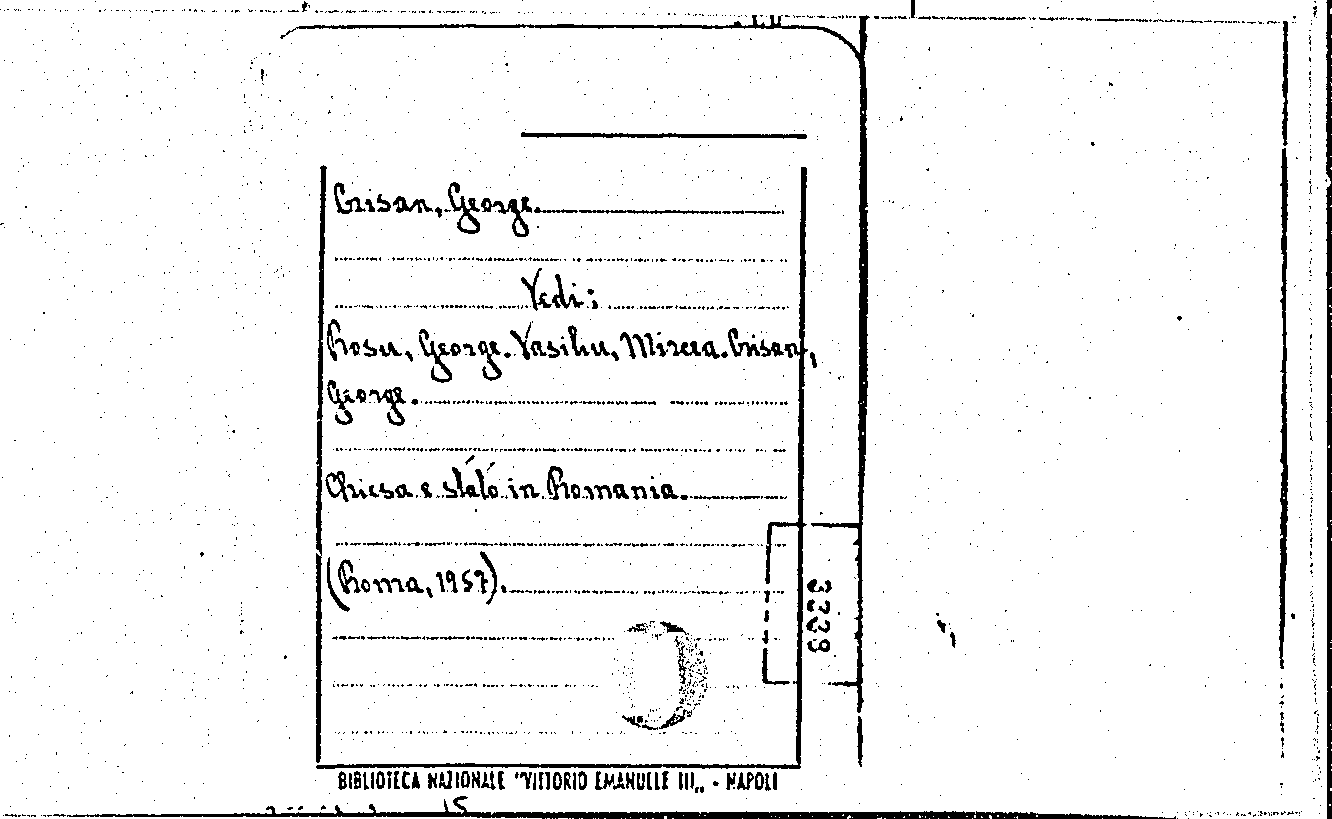 Crisan, George.
Vedi:
Rosu, George. Vasiliu, Mircea. Crisan,
George.
Chiesa e stato in Romania.
(Roma, 1957).
3339
BIBLIOTECA NAZIONALE "VITTORIO EMANUELE III„ - NAPOLI
15